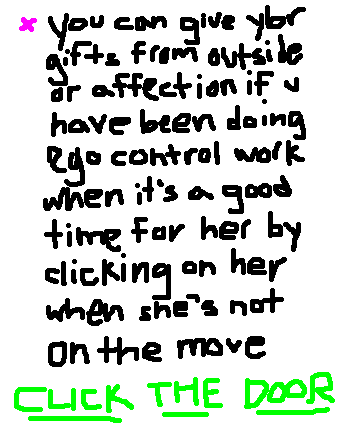 * you can give ybr
gifts from outside
or affection if u
have been doing
ego control work
when it's a good
time for her by
clicking on her
when she's not
on the move
CLICK THE DOOR